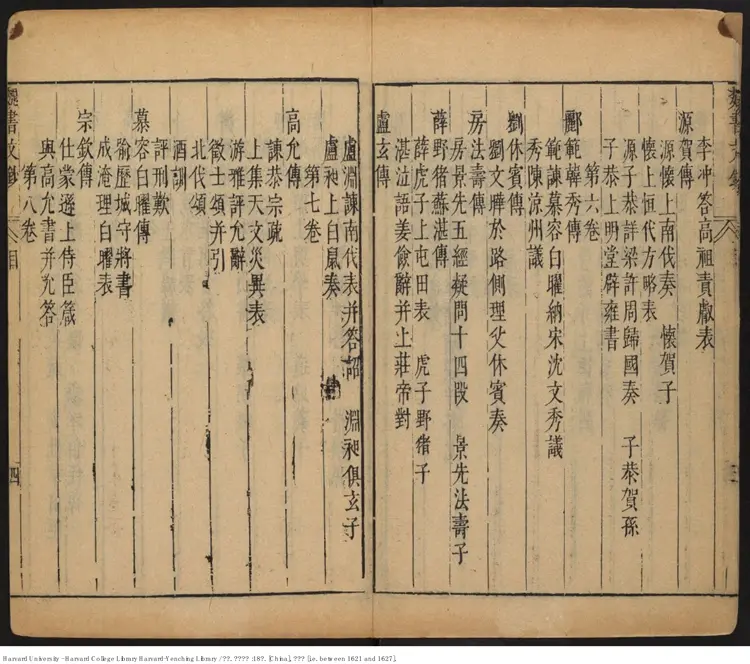 李冲答高祖責獻表
源賀傳
源懷上南伐表奏　懷賀子
懷上恒代方略表
源子恭詳梁許周歸國奏　子恭賀孫
子恭上明堂辟雍書
第六卷
酈範韓秀傳
範諫慕容白曜納宋沈文秀議
秀陳涼州議
劉休賓傳
劉文曄於路側理父休賓奏
房法壽傳
房景先五經疑問十四段　景先法壽子
薛野猪蘇湛傳
薛虎子上屯田表　虎子野猪子
湛泣語姜儉辭并上莊帝對
盧玄傳
盧淵諫南伐表并答詔　淵昶俱玄子
盧昶上白鼠奏
第七卷
高允傳
諫恭宗疏
上集天文災異表
游雅評允辭
徵士頌并引
北伐頌
酒訓
評刑歎
慕容白曜傳
喻歷城守將書
成淹理白曜表
宗欽傳
仕蒙遜上侍臣箴
與高允書并允答
第八卷
魏書文鈔
目
四
三
Harvard University - Harvard College Library Harvard-Yenching Library / ??. ???? :18?. [China], ??? [i.e. between 1621 and 1627].